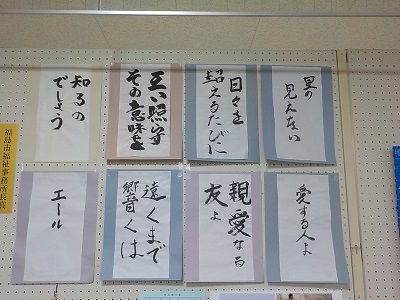 星の
見えない
日々を
超えるたびに
互い照らす
その意味を
知るの
でしょう
愛する人よ
親愛なる
友よ
遠くまで
響くは
エール
福島市福祉事務所長賞